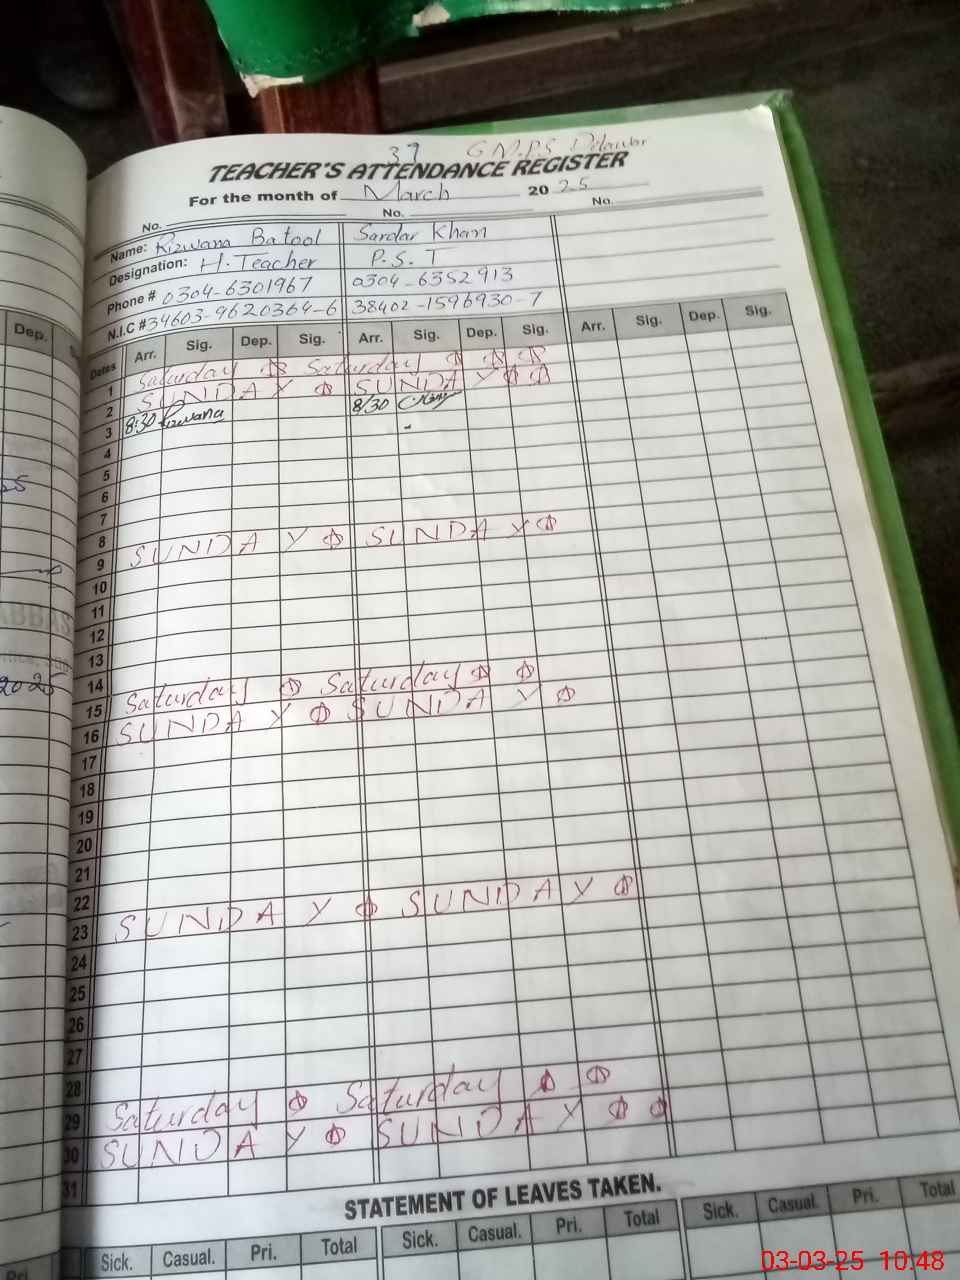 37 G.M.P.S
TEACHER'S ATTENDANCE REGISTER
For the month of March 20 25
No. No. No.
Name: Rizwana Batool Sardar Khan
Designation: H.Teacher P.S.T
Phone # 0304-6301967 0304-6352913
N.I.C # 34603-9620364-6 38402-1596930-7
Dates Arr. Sig. Dep. Sig. Arr. Sig. Dep. Sig. Arr. Sig. Dep. Sig.
1 Saturday Saturday
2 SUNDAY SUNDAY
3 8:30 Rizwana 8/30
4
5
6
7
8
9 SUNDAY SUNDAY
10
11
12
13
14
15 Saturday Saturday
16 SUNDAY SUNDAY
17
18
19
20
21
22
23 SUNDAY SUNDAY
24
25
26
27
28
29 Saturday Saturday
30 SUNDAY SUNDAY
31
STATEMENT OF LEAVES TAKEN.
Sick. Casual. Pri. Total Sick. Casual. Pri. Total Sick. Casual. Pri. Total
Dep.
2025
03-03-25 10.48